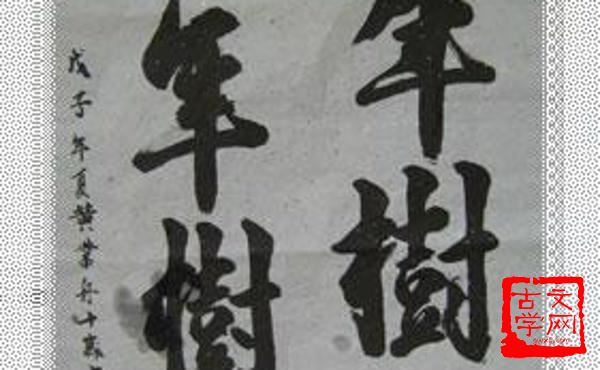 年樹
年樹
戊子年夏黄業舟十歲
古文
学网